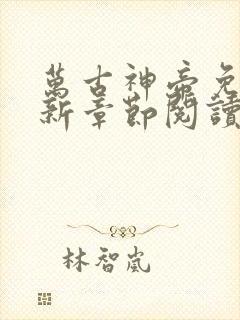 萬古神帝免
新章節閱讀
林智嵐